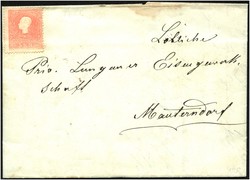 Löbliche
Priv. Lungauer Eisengewerk-
schaft
Mauterndorf